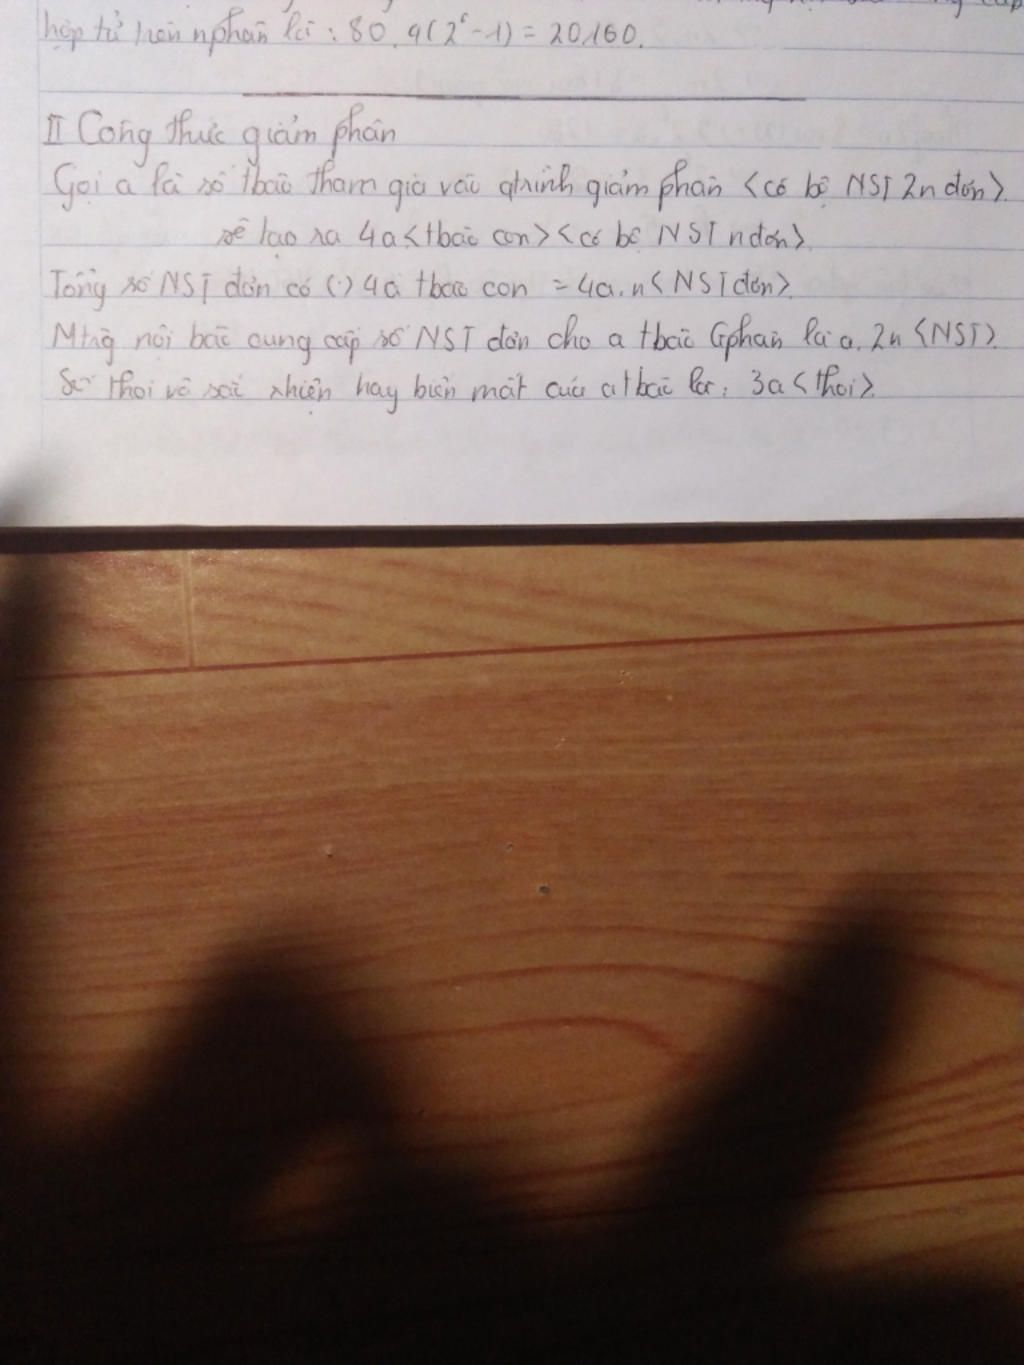 hợp tử trên nphân là : 80.4(2⁶-1) = 20160.
II Công thức giảm phân
Gọi a là số tbào tham gia vào qtrình giảm phân <có bộ NST 2n đơn>.
sẽ tạo ra 4a <tbào con> <có bộ NST n đơn>.
Tổng số NST đơn có (.) 4a tbào con = 4a.n <NST đơn>.
Mtrg nội bào cung cấp số NST đơn cho a tbào Gphân là a.2n <NST>.
Số thoi vô sắc xhiện hay biến mất của a tbào là: 3a <thoi>.